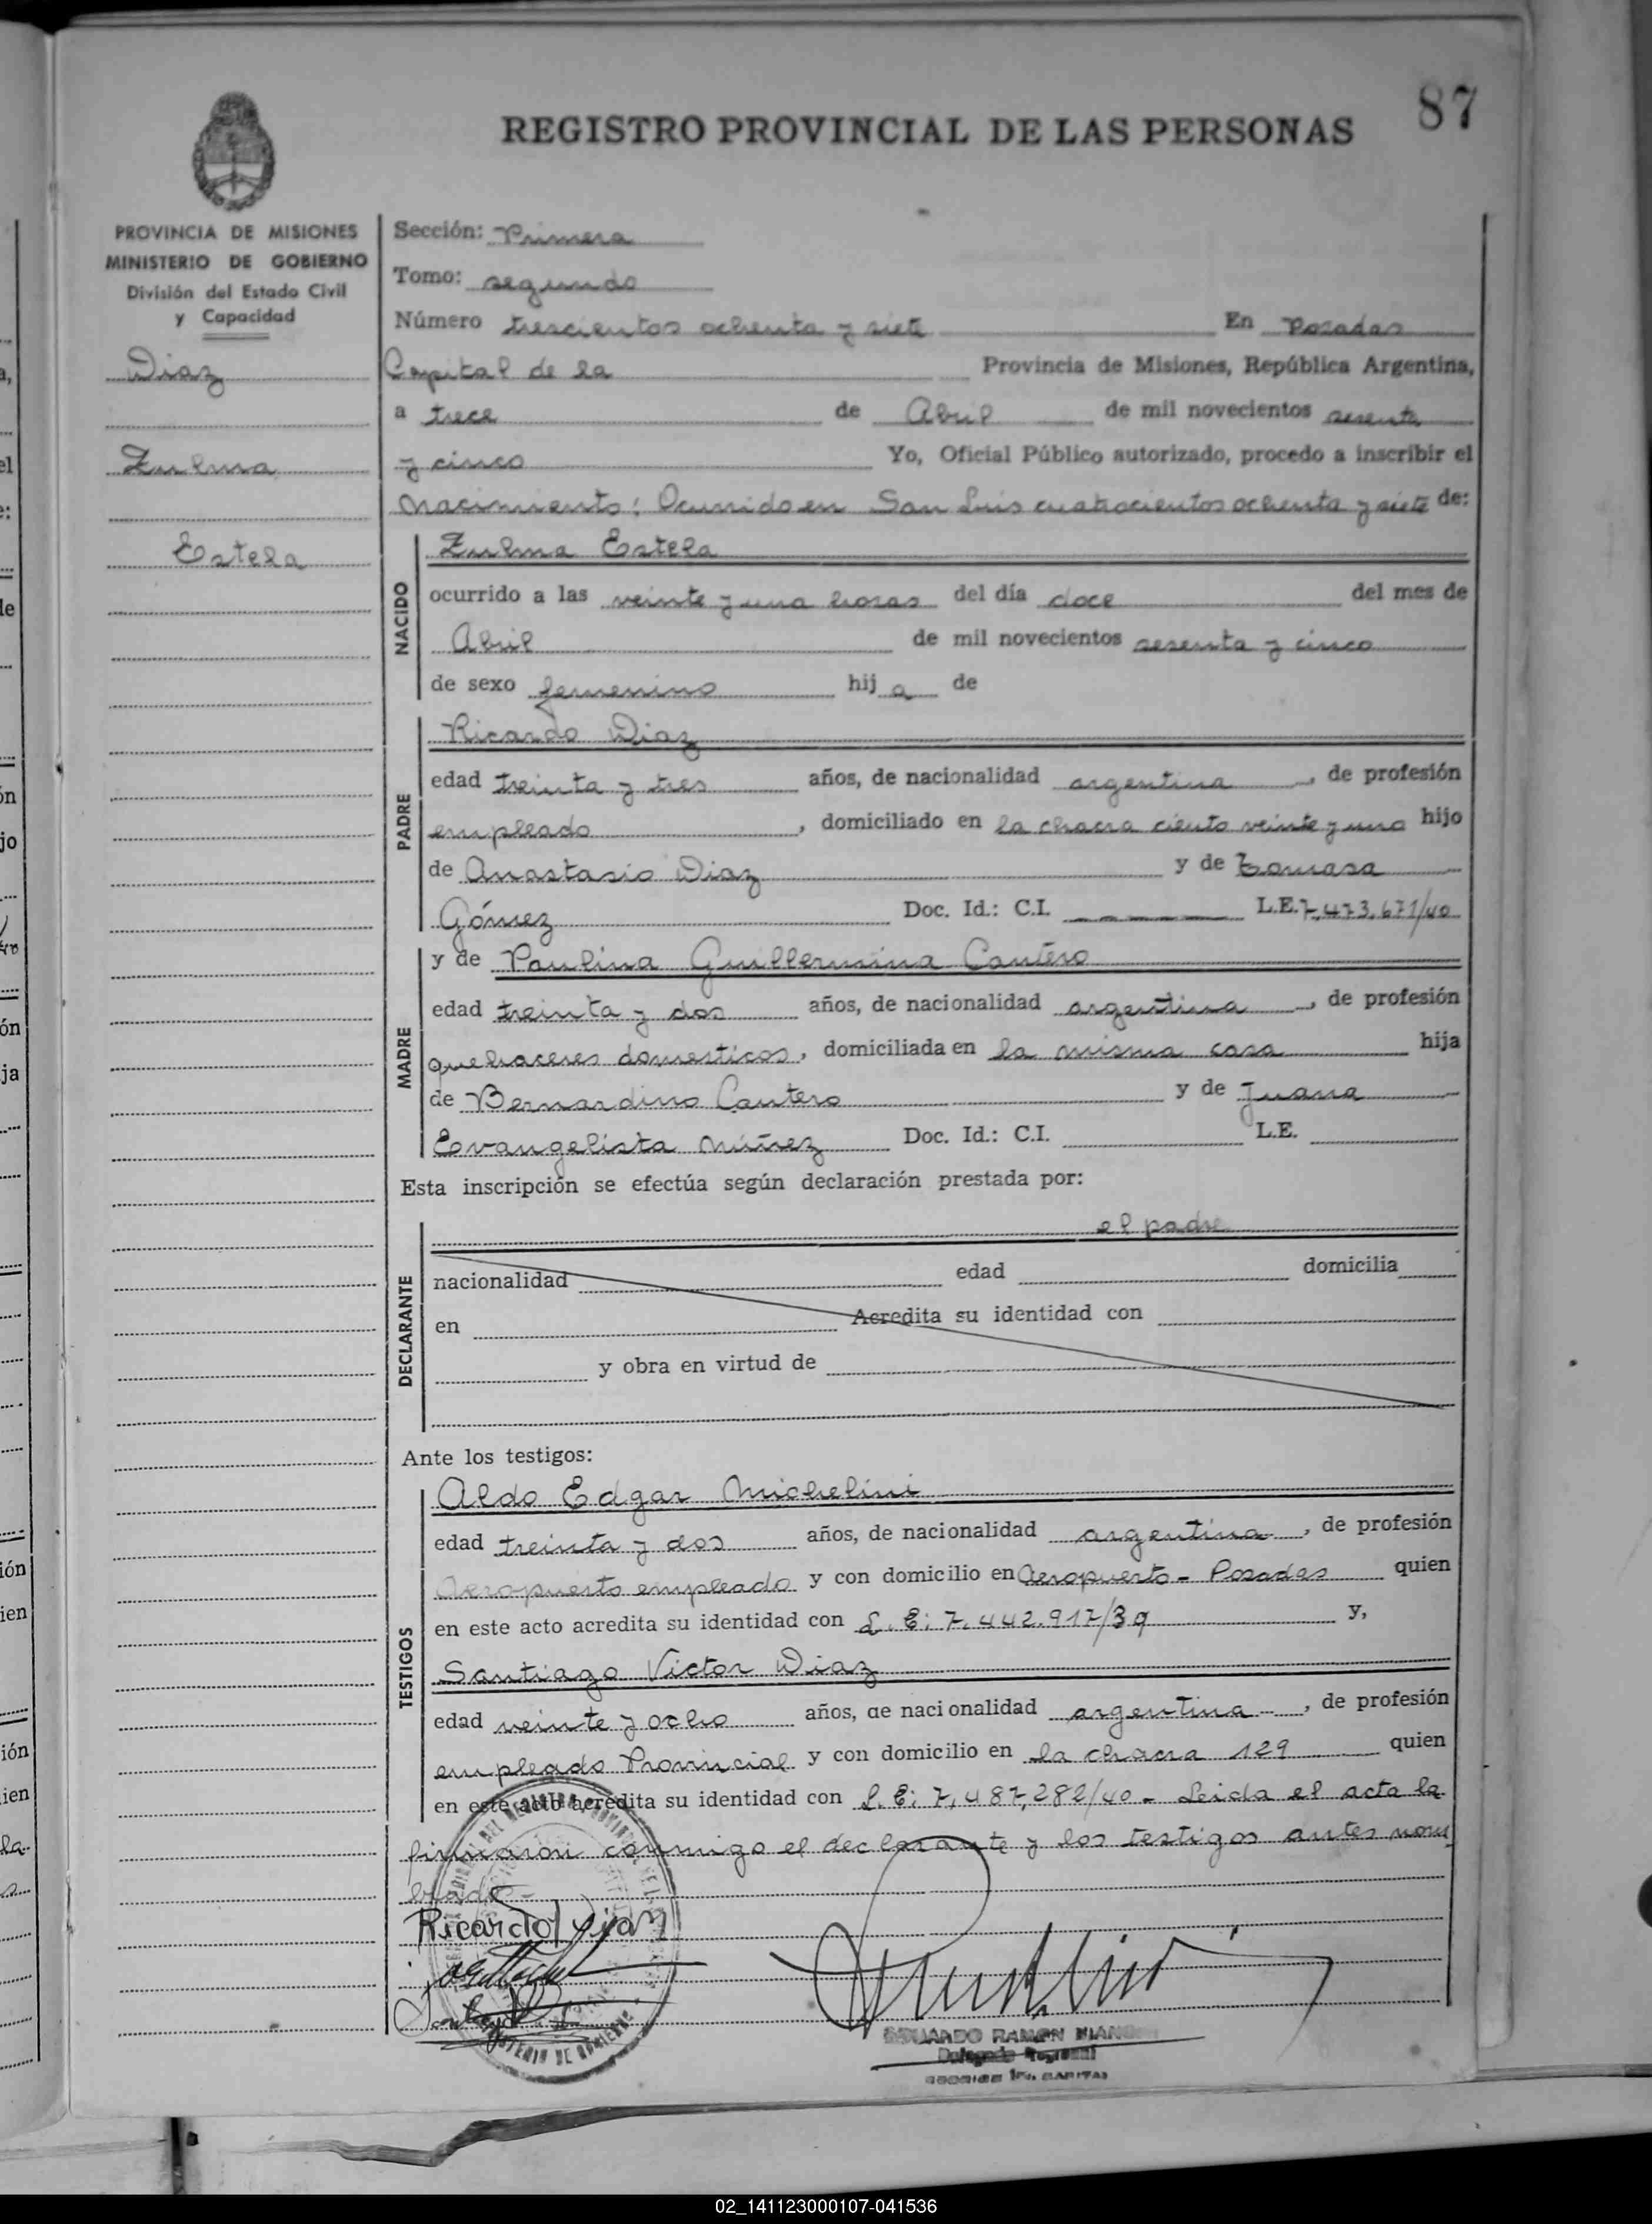 87
REGISTRO PROVINCIAL DE LAS PERSONAS
PROVINCIA DE MISIONES
MINISTERIO DE GOBIERNO
División del Estado Civil
y Capacidad
Diaz
Zulma
Estela
Sección: Primera
Tomo: segundo
Número trescientos ochenta y siete En Posadas
Capital de la Provincia de Misiones, República Argentina,
a trece de Abril de mil novecientos sesenta
y cinco Yo, Oficial Público autorizado, procedo a inscribir el
Nacimiento: Ocurrido en San Luis cuatrocientos ochenta y siete de:
NACIDO
Zulma Estela
ocurrido a las veinte y una horas del día doce del mes de
Abril de mil novecientos sesenta y cinco
de sexo femenino hij a de
PADRE
Ricardo Diaz
edad treinta y tres años, de nacionalidad argentina, de profesión
empleado, domiciliado en la chacra ciento veinte y uno hijo
de Anastasio Diaz y de Tomasa
Gómez Doc. Id.: C.I. L.E. 7,473,671/40
MADRE
y de Paulina Guillermina Cantero
edad treinta y dos años, de nacionalidad argentina, de profesión
quehaceres domesticos, domiciliada en la misma casa hija
de Bernardino Cantero y de Juana
Evangelista Núñez Doc. Id.: C.I. L.E.
Esta inscripción se efectúa según declaración prestada por:
DECLARANTE
el padre
nacionalidad edad domicilia
en Acredita su identidad con
y obra en virtud de
Ante los testigos:
TESTIGOS
Aldo Edgar Michelini
edad treinta y dos años, de nacionalidad argentina, de profesión
Aeropuerto empleado y con domicilio en Aeropuerto - Posadas quien
en este acto acredita su identidad con L.E: 7.442.917/39 y,
Santiago Victor Diaz
edad veinte y ocho años, de nacionalidad argentina, de profesión
empleado Provincial y con domicilio en la chacra 129 quien
en este acto acredita su identidad con L.E: 7,487,282/40 - Leida el acta la
firmaron conmigo el declarante y los testigos antes nom
brados -
Ricardo Diaz
EDUARDO RAMON
Delegado Regional
02_141123000107-041536